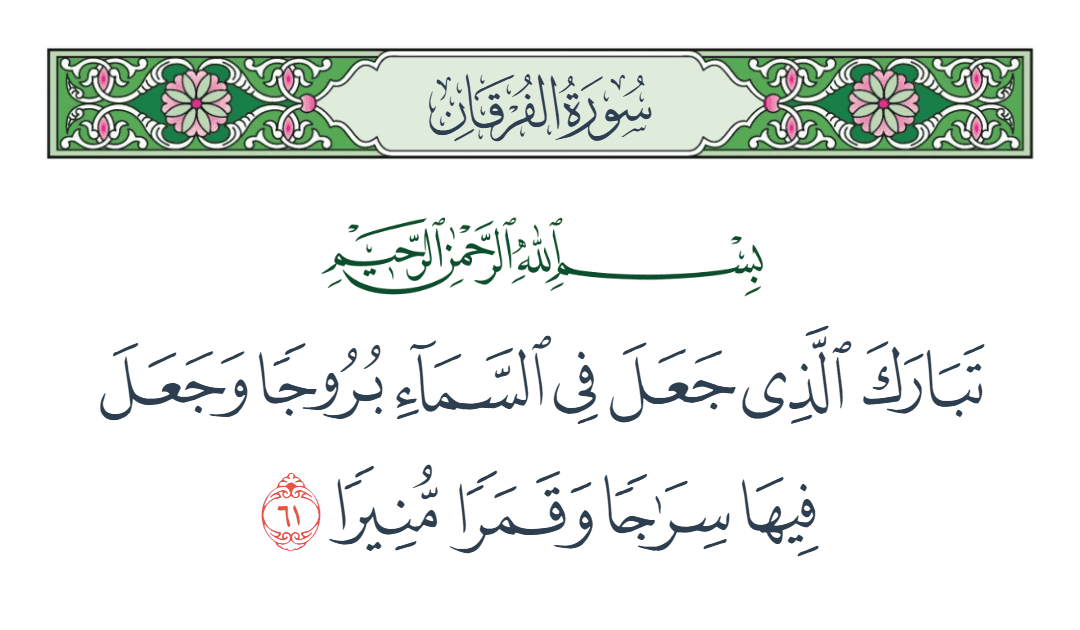 سُورَةُ الفُرْقَانِ
بِسْمِ ٱللَّهِ ٱلرَّحْمَٰنِ ٱلرَّحِيمِ
تَبَارَكَ ٱلَّذِى جَعَلَ فِى ٱلسَّمَآءِ بُرُوجًا وَجَعَلَ
فِيهَا سِرَٰجًا وَقَمَرًا مُّنِيرًا ٦١